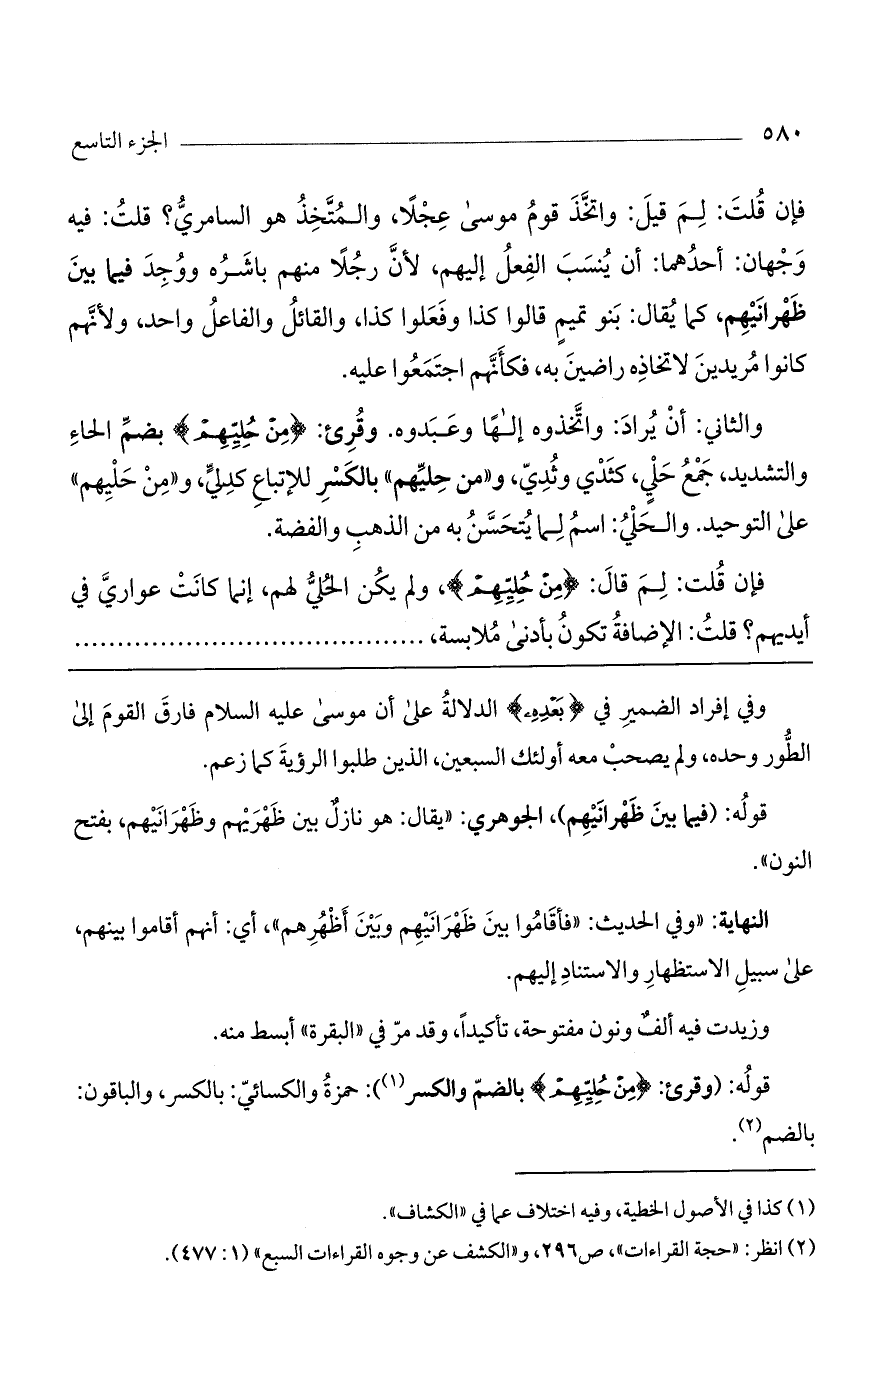 ٥٨٠ الجزء التاسع
فإن قُلتَ: لِـمَ قيلَ: واتخَّذَ قومُ موسىٰ عِجْلًا، والـمُتَّخِذُ هو السامريُّ؟ قلتُ: فيه
وَجْهان: أحدُهما: أن يُنسَبَ الفِعلُ إليهم، لأنَّ رجُلًا منهم باشَـرُه ووُجِدَ فيما بينَ
ظَهْرانَيْهِم، كما يُقال: بَنو تميمٍ قالوا كذا وفَعَلوا كذا، والقائلُ والفاعلُ واحد، ولأنَّهم
كانوا مُريدينَ لاتخاذِه راضينَ به، فكأنَّهم اجتَمَعُوا عليه.
والثاني: أنْ يُرادَ: واتَّخذوه إلـٰهًا وعَـبَدوه. وقُرِئ: ﴿مِنْ حُلِيِّهِمْ﴾ بضمِّ الحاءِ
والتشديد، جَمْعُ حَلْيٍ، كثَدْيٍ وثُدِيّ، و«من حِليِّهم» بالكَسْرِ للإتباعِ كدِليٍّ، و«مِنْ حَلْيِهم»
علىٰ التوحيد. والـحَلْيُ: اسمُ لِـما يُتحَسَّنُ به من الذهبِ والفضة.
فإن قُلت: لِـمَ قالَ: ﴿مِنْ حُلِيِّهِمْ﴾، ولم يكُن الحُليُّ لهم، إنما كانَتْ عواريَّ في
أيديهم؟ قلتُ: الإضافةُ تكونُ بأدنىٰ مُلابسة، .......................................
وفي إفراد الضميرِ في ﴿بَعْدِهِۦ﴾ الدلالةُ علىٰ أن موسىٰ عليه السلام فارقَ القومَ إلىٰ
الطُّور وحده، ولم يصحبْ معه أولئك السبعين، الذين طلبوا الرؤيةَ كما زعم.
قولُه: (فيما بينَ ظَهْرانَيْهِم)، الجوهري: «يقال: هو نازلٌ بين ظَهْرَيْهم وظَهْرَانَيْهم، بفتح
النون».
النهاية: «وفي الحديث: «فأقَامُوا بينَ ظَهْرَانَيْهِم وبَيْنَ أَظْهُرِهم»، أي: أنهم أقاموا بينهم،
علىٰ سبيلِ الاستظهارِ والاستنادِ إليهم.
وزيدت فيه ألفٌ ونون مفتوحة، تأكيداً، وقد مرّ في «البقرة» أبسط منه.
قولُه: (وقرئ: ﴿مِنْ حُلِيِّهِمْ﴾ بالضمّ والكسر(١)): حمزةُ والكسائيّ: بالكسر، والباقون:
بالضم(٢).
(١) كذا في الأصول الخطية، وفيه اختلاف عما في «الكشاف».
(٢) انظر: «حجة القراءات»، ص٢٩٦، و«الكشف عن وجوه القراءات السبع» (١: ٤٧٧).